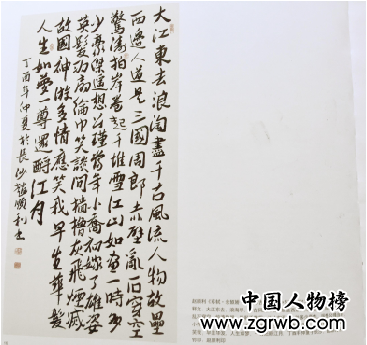 大江東去浪淘盡千古風流人物故壘
西邊人道是三國周郎赤壁亂石穿空
驚濤拍岸卷起千堆雪江山如畫一時多
少豪傑遙想公瑾當年小喬初嫁了雄姿
英發羽扇綸巾笑談間檣櫓灰飛煙滅
故國神遊多情應笑我早生華髮
人生如夢一尊還酹江月
丁酉年仲夏於長沙趙順利書
中国人物榜
www.zgrwb.com